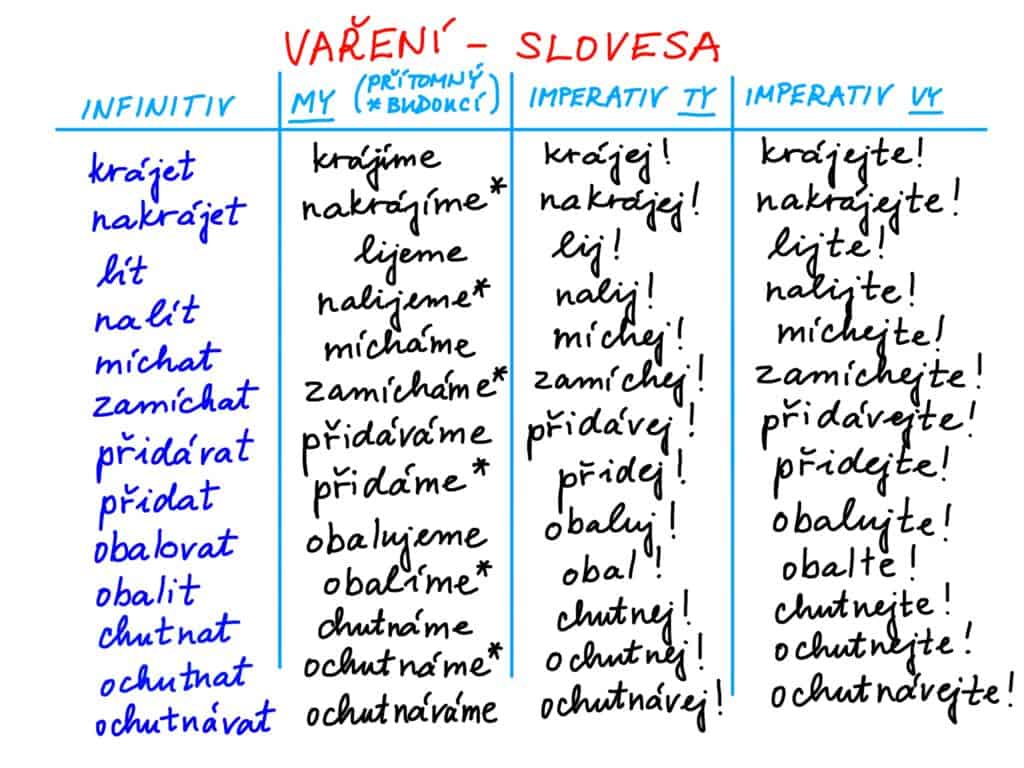 VAŘENÍ - SLOVESA
INFINITIV MY (PŘÍTOMNÝ * BUDOUCÍ) IMPERATIV TY IMPERATIV VY
krájet krájíme krájej! krájejte!
nakrájet nakrájíme* nakrájej! nakrájejte!
lít lijeme lij! lijte!
nalít nalijeme* nalij! nalijte!
míchat mícháme míchej! míchejte!
zamíchat zamícháme* zamíchej! zamíchejte!
přidávat přidáváme přidávej! přidávejte!
přidat přidáme* přidej! přidejte!
obalovat obalujeme obaluj! obalujte!
obalit obalíme* obal! obalte!
chutnat chutnáme chutnej! chutnejte!
ochutnat ochutnáme* ochutnej! ochutnejte!
ochutnávat ochutnáváme ochutnávej! ochutnávejte!